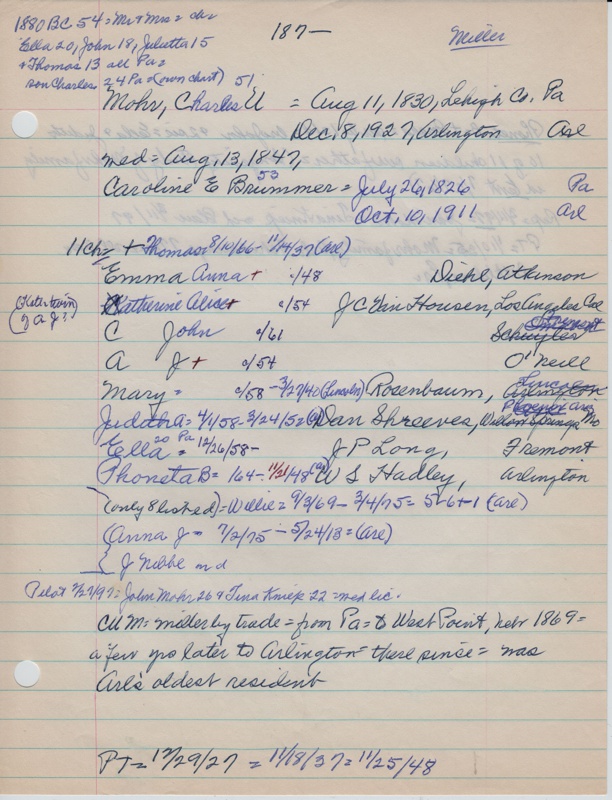 1880 BC 54 = Mr + Mrs = ch =
187—
Miller
Ella 20, John 18, Juletta 15
+ Thomas 13 all Pa =
son Charles 24 Pa = (own chart) 51
Mohr, Charles U = Aug 11, 1830, Lehigh Co, Pa
Dec, 8, 1927, Arlington
med = Aug, 13, 1847,
53
Caroline E Brummer = July 26, 1826 Pa
Oct, 10, 1911 Arl
11 ch = + Thomas = 8/10/66 - 11/14/37 (Arl)
Emma Anna + °/48 Diehl, Atkinson
(Kate twin of A J?)
Katherine Alice + °/54 J C Van Housen, Los Angeles
C John °/61 Schuyler Fremont
A J + °/54 O'Neill
Mary = °/58 - 3/27/40 (Lincoln) Rosenbaum, Arlington Lincoln
Juditha = 4/1/58 - 3/24/52 Dan Shreeves, Willow Springs Mo
Ella = 20 Pa 12/26/58 - J P Long, Fremont
Phoneta B = 164 - 11/21/48 W S Hadley, Arlington
(only 8 listed) = Willie = 9/3/69 - 3/4/75 = 5-6+1 (Arl)
(Anna J = 7/2/75 - 5/24/18 = (Arl)
Pilot 7/27/97 = John Mohr 26 + Tina Kniep 22 = med lic.
CUM = miller by trade = from Pa = to West Point, Nebr 1869 =
a few yrs later to Arlington = there since = was
Arl's oldest resident
PT = 12/29/27 = 11/18/37 = 11/25/48